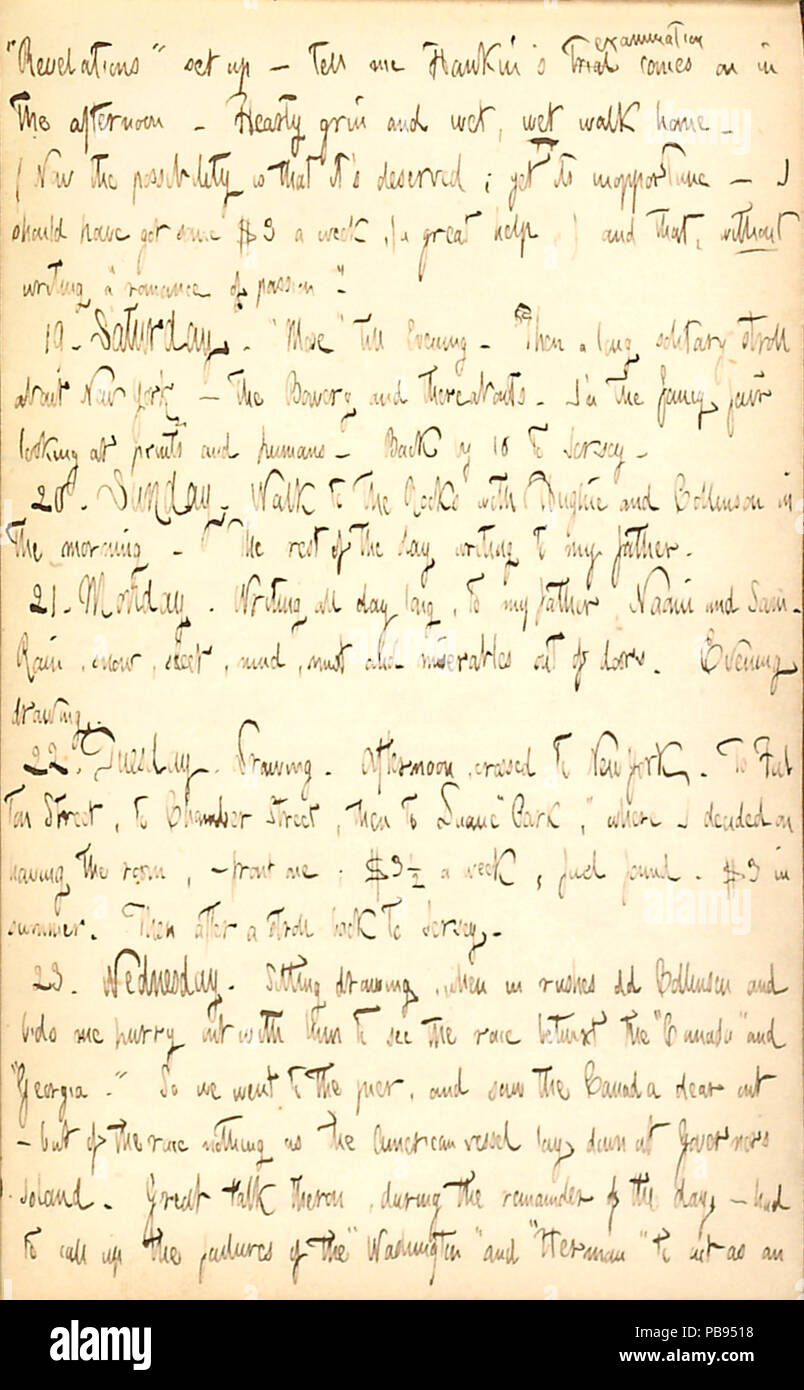 examination
"Revelations" set up — tell me Hankin's Trial comes on in
the afternoon — Hearty grin and wet, wet walk home —
(Now the possibility is that it's deserved; yet 'tis inopportune — I
should have got some $3 a week, (a great help,) and that, without
writing a "romance of passion".
19. Saturday. "Mose" till Evening — Then a long solitary stroll
about New York — the Bowery and thereabouts. In the fancy fair
looking at prints and humans — Back by 10 to Jersey —
20. Sunday. Walk to the Rocks with Hughie and Collinson in
the morning — The rest of the day writing to my father.
21. Monday. Writing all day long, to my father, Naomi and Sam.
Rain, snow, sleet, mud, mist and miserables out of doors. Evening
drawing.
22. Tuesday. Drawing. Afternoon, crossed to New York. To Ful
ton Street, to Chamber Street, then to Duane "Park," where I decided on
having the room, — front one. $3½ a week, fuel found. $3 in
summer. Then after a stroll back to Jersey.
23. Wednesday. Sitting drawing, when in rushes old Collinson and
bids me hurry out with him to see the race betwixt the "Canada" and
"Georgia." So we went to the pier, and saw the Canada clear out
— but of the race nothing as the American vessel lay down at Governors
Island. Great talk theron, during the remainder of the day, — had
to call up the failures of the "Washington" and "Herman" to act as an
alamy
alamy
alamy
alamy
Image ID: PB9518
www.alamy.com